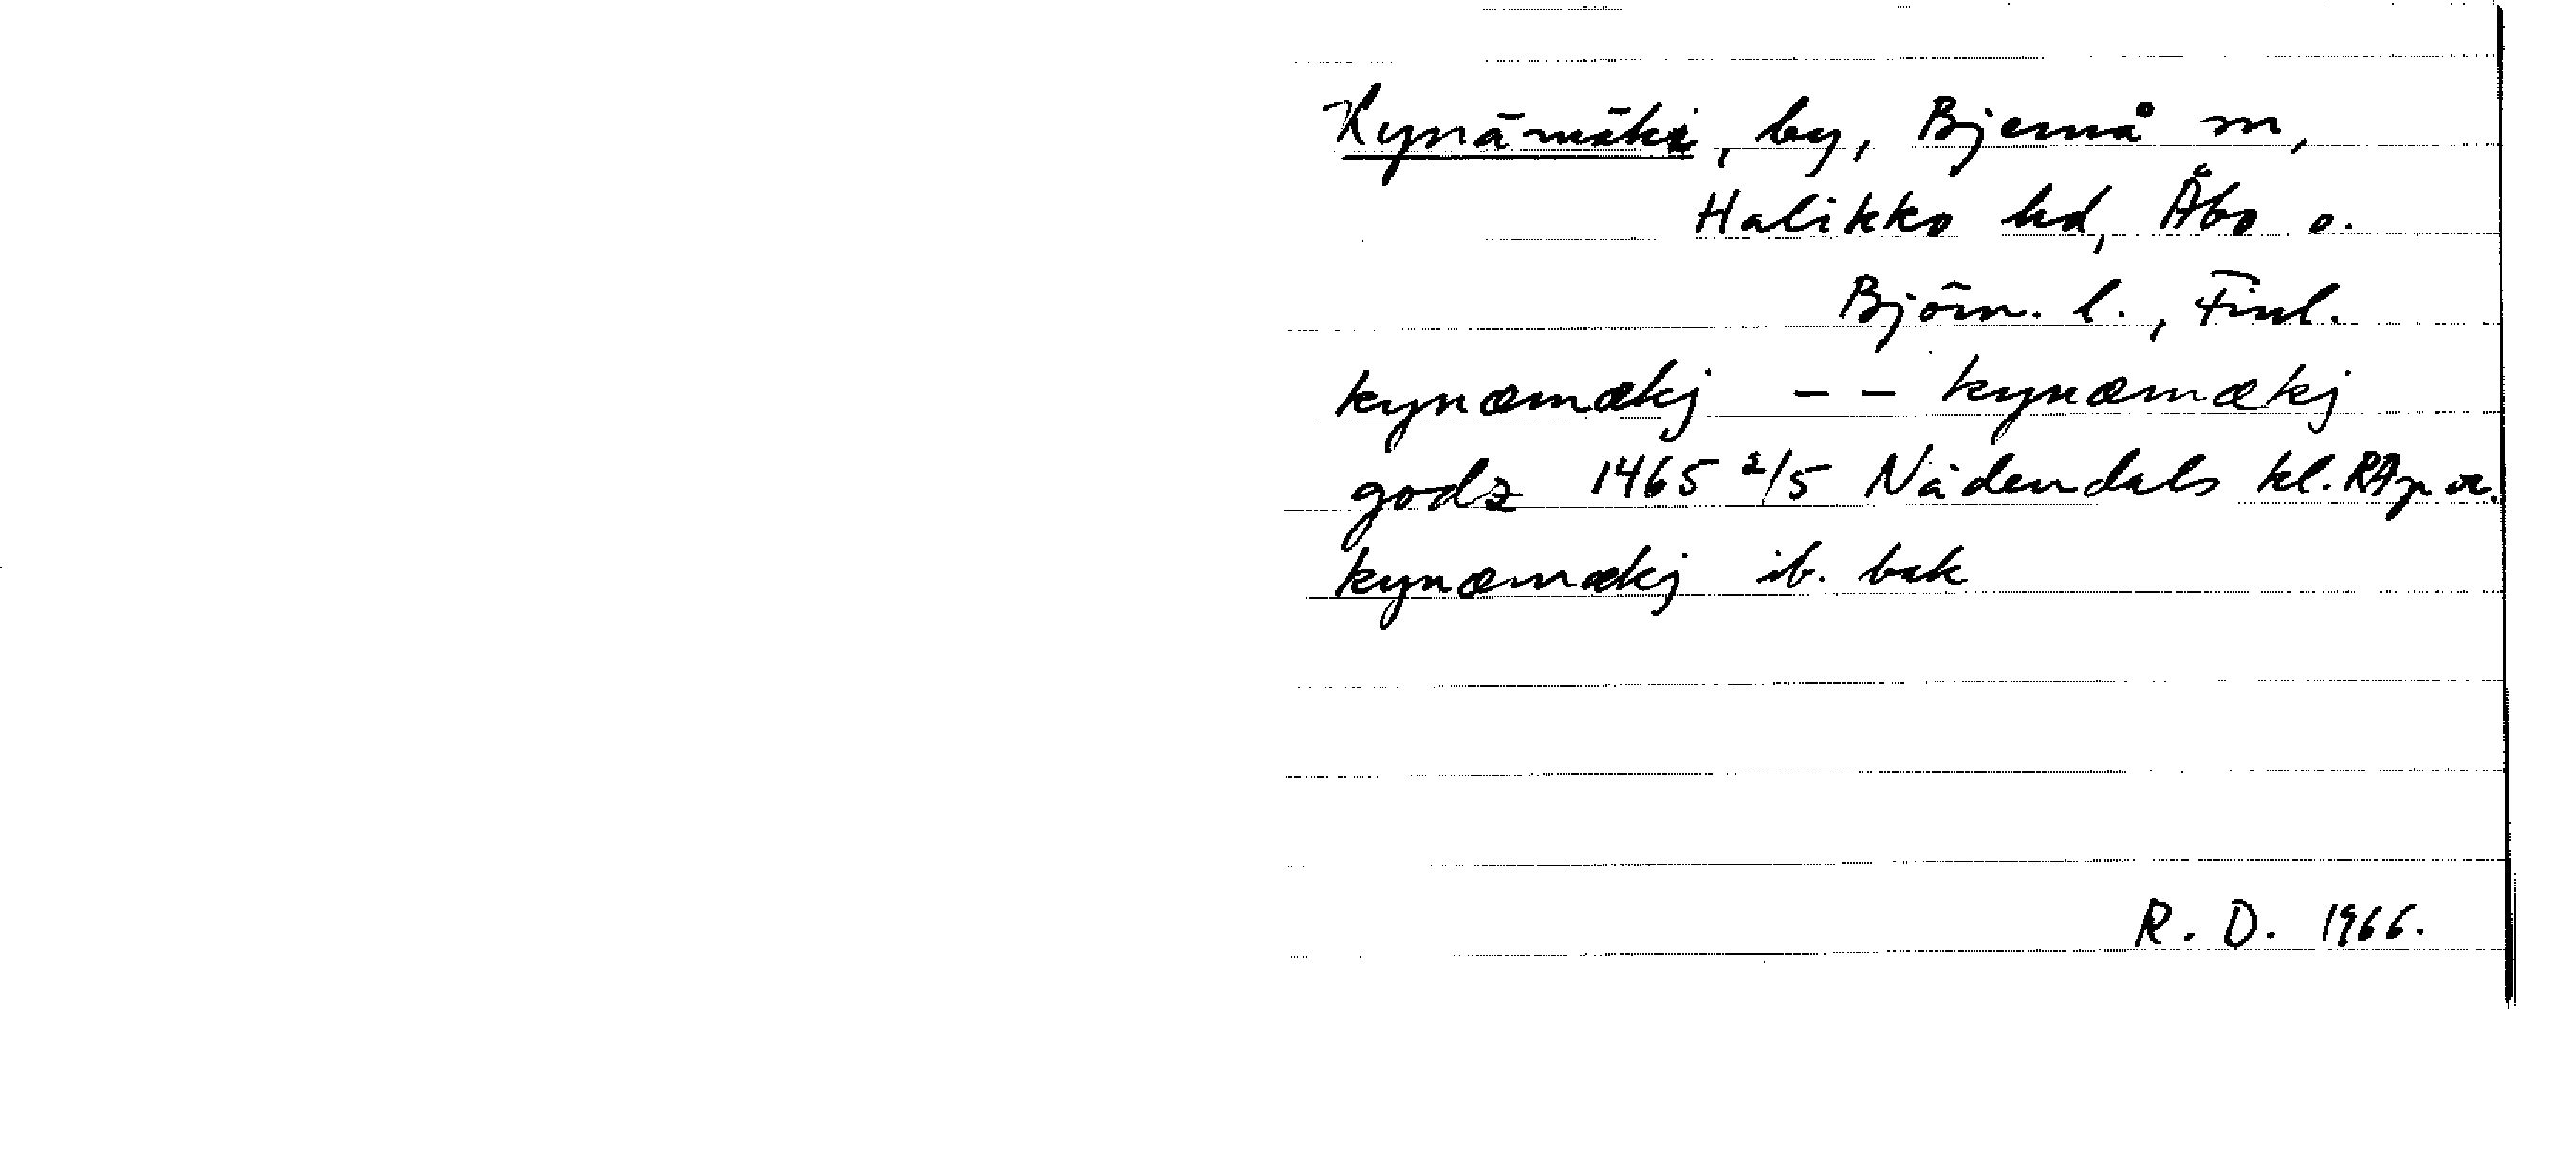 Kynämäki, by, Bjernå sn,
Halikko hd, Åbo o.
Björn. l., Finl.
kynæmækj – – kynæmækj
godz 1465 2/5 Nådendals kl. RAp or.
kynæmækj ib. bak
R. D. 1966.